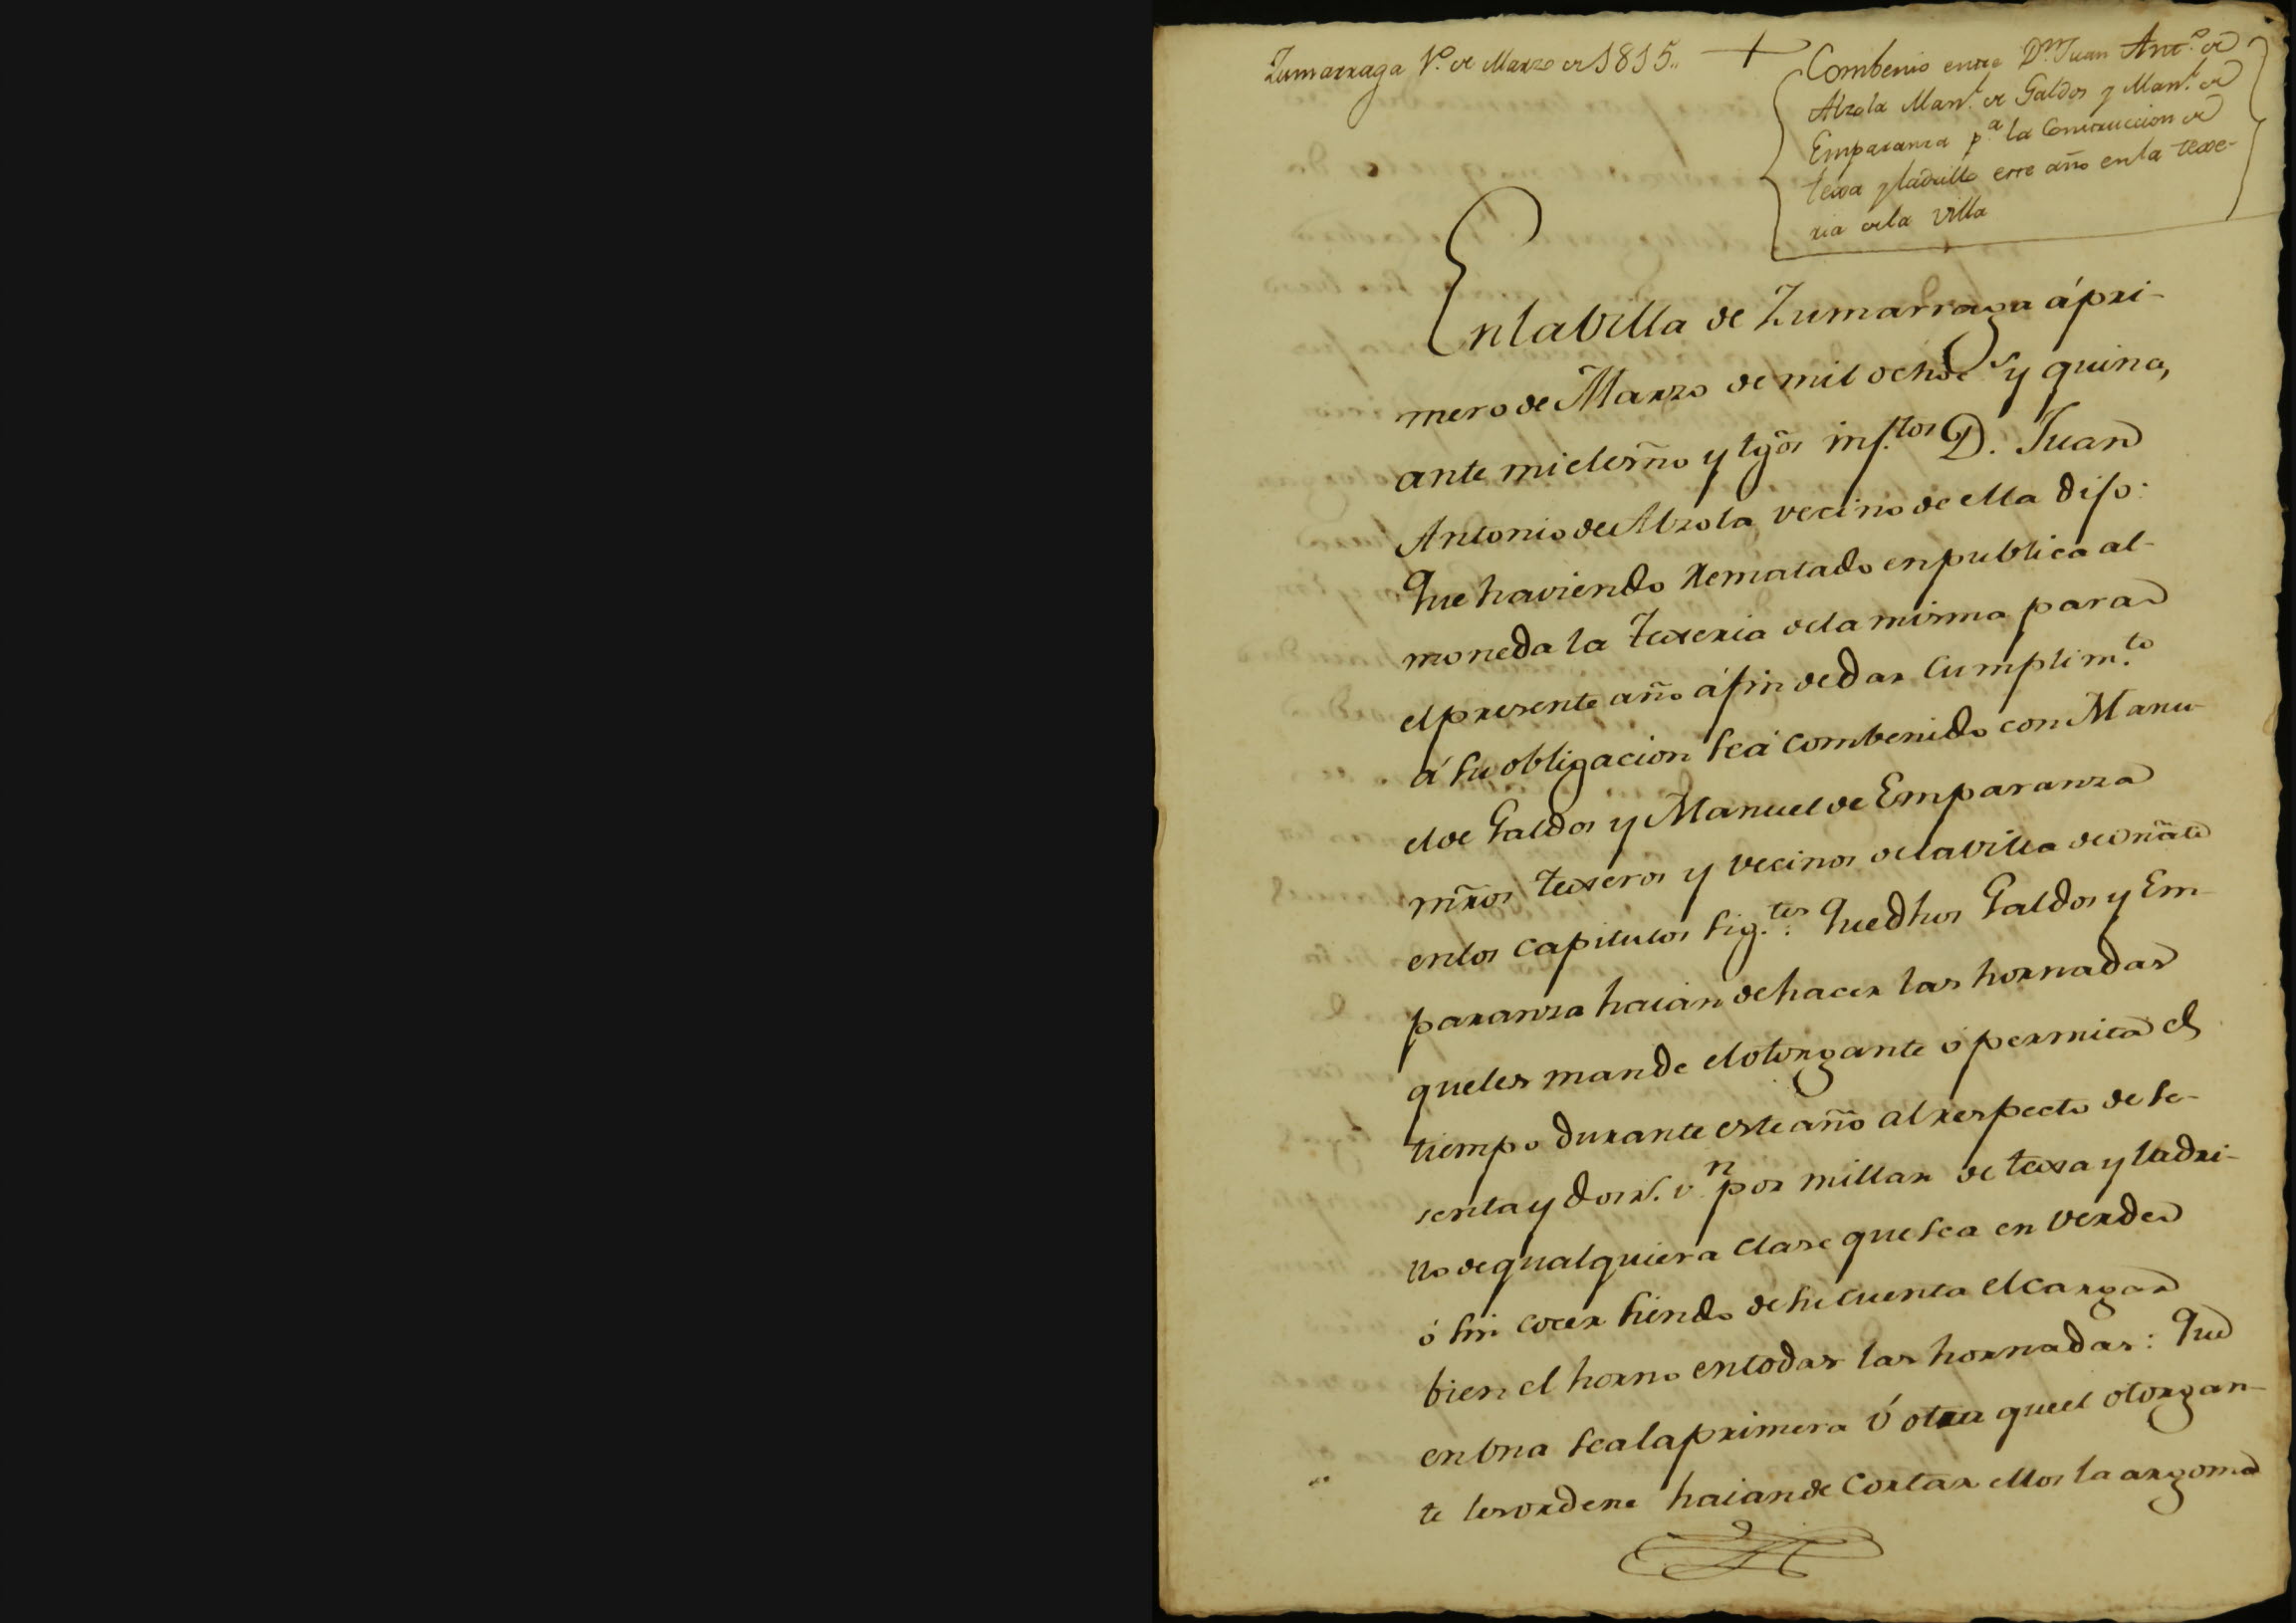 Zumarraga 1º. de Marzo de 1815.. +
Combenio entre Dn. Juan Antº. de
Alzola Manl. de Galdos y Manl. de
Emparanza pª. la Construccion de
texa y ladrillo este año en la texe-
ria de la villa
En la Villa de Zumarraga á pri-
mero de Marzo de mil ochocs. y quince,
ante mi el esrño y tgõs infr.tos D. Juan
Antonio de Alzola vecino de ella dijo:
Que haviendo rematado en publica al-
moneda la Texeria de la misma para
el presente año á fin de dar cumplim.to
á su obligacion se á combenido con Manu-
el de Galdos y Manuel de Emparanza
mr̃os Texeros y vecinos de la villa de oñate
en los capitulos sig.tes: Que dhos Galdos y Em-
paranza haian de hacer las hornadas
que les mande el otorgante ó permita el
tiempo durante este año al respecto de se-
senta y dos rs. vn. por millar de texa y ladri-
llo de qualquiera clase que sea en verde
ó sin cocer siendo de su cuenta el cargar
bien el horno en todas las hornadas: Que
en una sea la primera ú otra que el otorgan-
te les ordene haian de cortar ellos la argoma